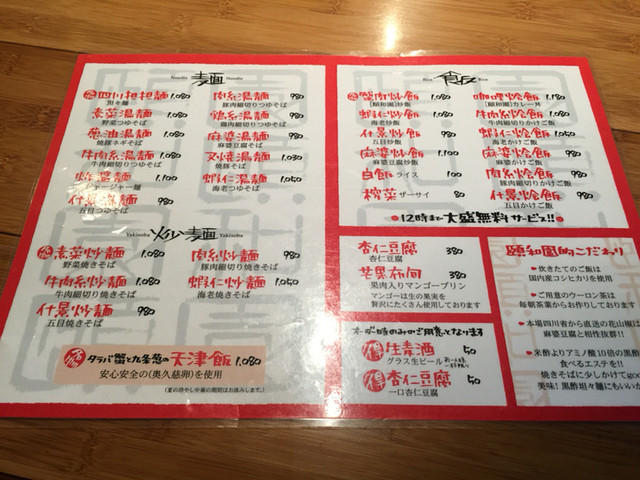 Noodle 麺 Noodle
四川担担麺 1.080
坦々麺
煮菜湯麺 1.080
野菜つゆそば
葱油湯麺 1.080
焼豚ネギそば
牛肉糸湯麺 1.080
牛肉細切りつゆそば
炸醤麺 1.100
ジャージャー麺
什景湯麺 980
五目つゆそば
肉糸湯麺 980
豚肉細切りつゆそば
鶏糸湯麺 980
鶏肉細切りつゆそば
麻婆湯麺 980
麻婆豆腐そば
叉焼湯麺 1.030
焼豚そば
蝦仁湯麺 1.050
海老つゆそば
Yakisoba 炒麺 Yakisoba
煮菜炒麺 980
野菜焼きそば
牛肉糸炒麺 1.080
牛肉細切り焼きそば
什景炒麺 980
五目焼きそば
肉糸炒麺 980
豚肉細切り焼きそば
蝦仁炒麺 1.050
海老焼きそば
タラバ蟹と九条葱の天津飯 1.080
安心安全の(奥久慈卵)を使用
(夏の冷やし中華の期間はお休みします。)
Rice 飯 Rice
蟹肉炒飯 1.080
[頤和園]炒飯
蝦仁炒飯 980
海老炒飯
什景炒飯 980
五目炒飯
麻婆炒飯 1.080
白飯 ライス 100
搾菜 ザーサイ 80
咖喱烩飯 1.180
[頤和園]カレー丼
牛肉糸烩飯 1.080
牛肉細切りかけご飯
蝦仁烩飯 1.050
海老かけご飯
麻婆烩飯 980
麻婆豆腐かけご飯
肉糸烩飯 980
豚肉細切りかけご飯
什景烩飯 980
五目かけご飯
12時まで大盛無料サービス!!
杏仁豆腐 380
杏仁豆腐
芒果布甸 380
果肉入りマンゴープリン
マンゴーは生の果実を
贅沢にたくさん使用しております
オーダー時のみのご用意となります
得 生麦酒 50
グラス生ビール
得 杏仁豆腐 50
一口杏仁豆腐
頤和園的こだわり
炊きたてのご飯は
国内産コシヒカリを使用
ご用意のウーロン茶は
毎朝茶葉からお作りしております
本場四川省から直送の花山椒
麻婆豆腐と相性抜群!!
米酢よりアミノ酸10倍の黒酢
食べるエステを!!
焼きそばに少しかけてgoo
美味! 黒酢坦々麺にもいい